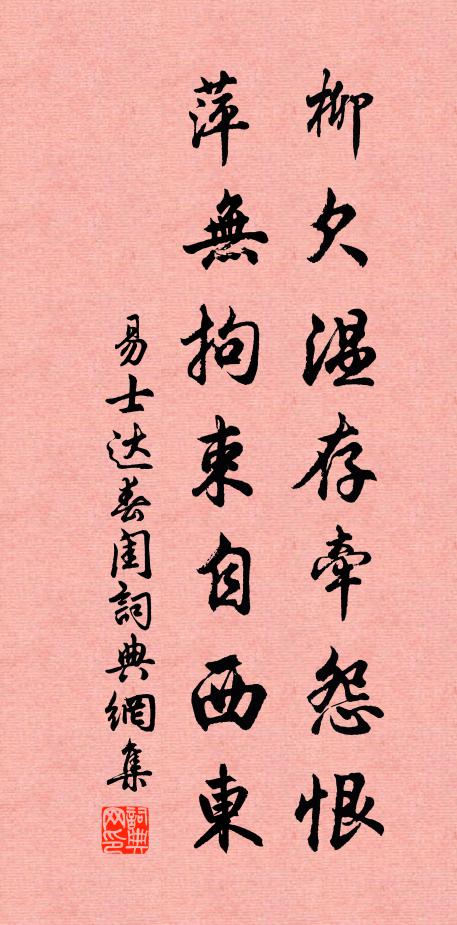 柳欠温存牽怨恨
萍無拘束自西東
易士达春闺詞典網集
詞典网印